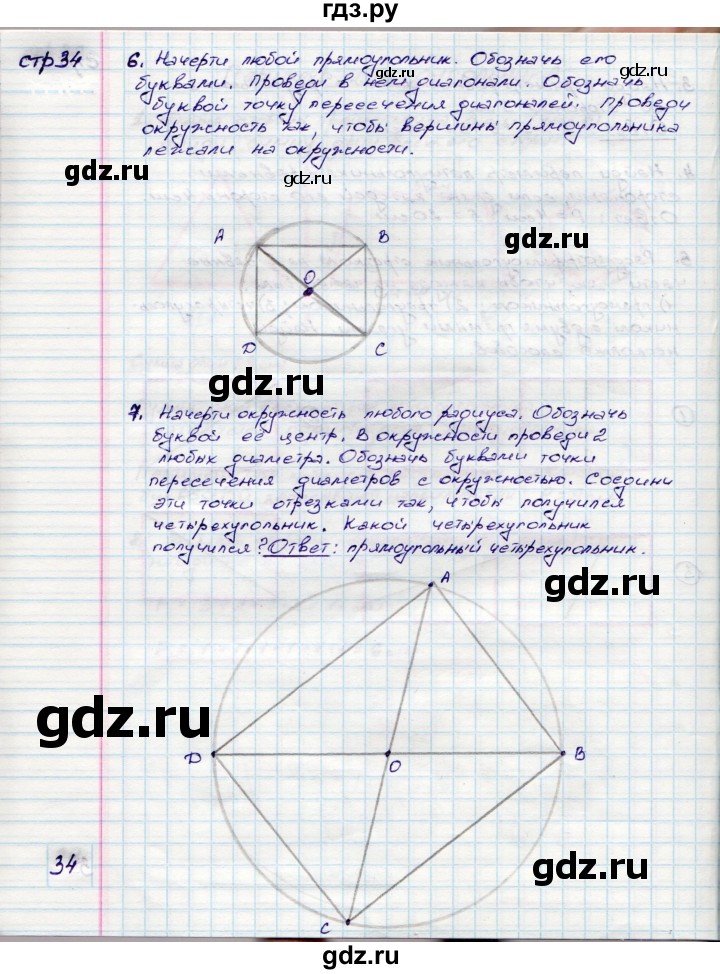 гдз.ру
стр 34
6. Начерти любой прямоугольник. Обозначь его
буквами. Проведи в нем диагонали. Обозначь
буквой точку пересечения диагоналей. Проведи
окружность так, чтобы вершины прямоугольника
лежали на окружности.
gdz.ru
gdz.ru
gdz.ru
A B
O
D C
gdz.ru
7. Начерти окружность любого радиуса. Обозначь
буквой её центр. В окружности проведи 2
любых диаметра. Обозначь буквами точки
пересечения диаметров с окружностью. Соедини
эти точки отрезками так, чтобы получился
четырехугольник. Какой четырехугольник
получился? Ответ: прямоугольный четырехугольник.
gdz.ru
A
gdz.ru
gdz.ru
D O B
34
gdz.ru
C
gdz.ru